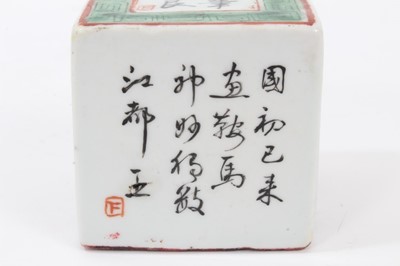 國初已来
畫鞍馬
神妙獨數
江都王